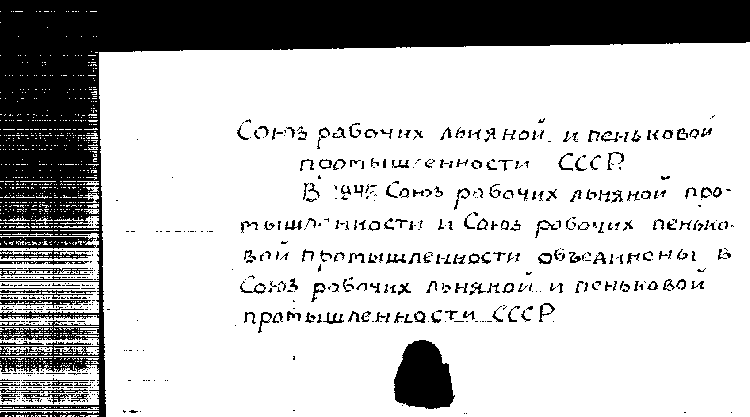 Союз рабочих льняной и пеньковой
промышленности СССР.
В 1945 Союз рабочих льняной про-
мышленности и Союз рабочих пенько-
вой промышленности объединены в
Союз рабочих льняной и пеньковой
промышленности СССР